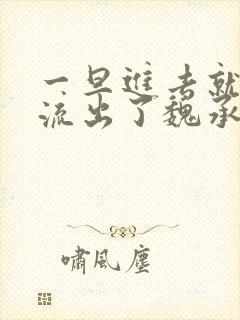 一早进去就
流出了魏承
啸风尘